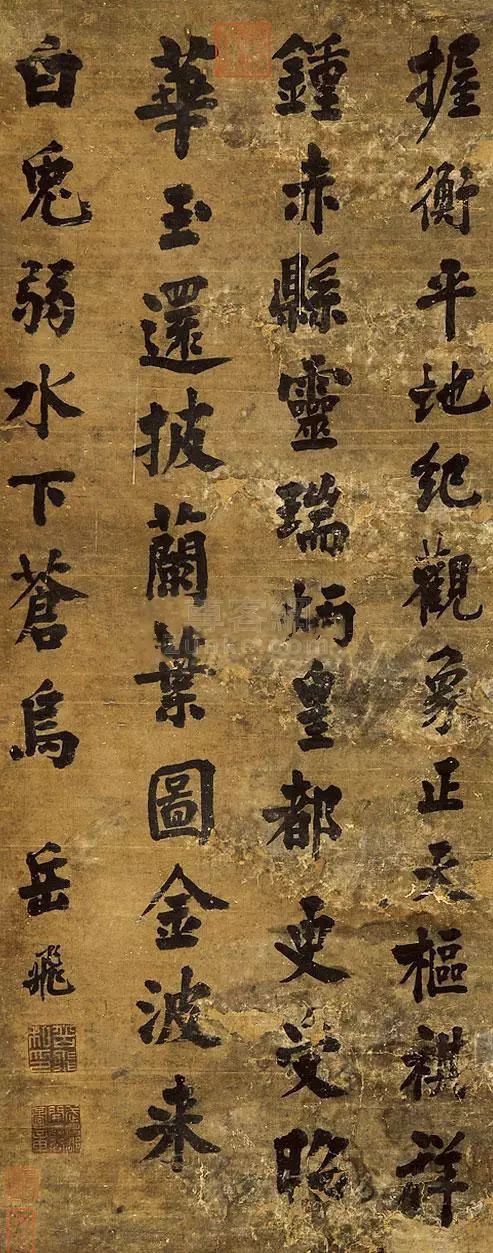 握衡平地紀觀象正天樞祺祥
鍾赤縣靈瑞炳皇都更受昭
華玉還披蘭葉圖金波来
白兔弱水下蒼烏
岳飛
尊客網